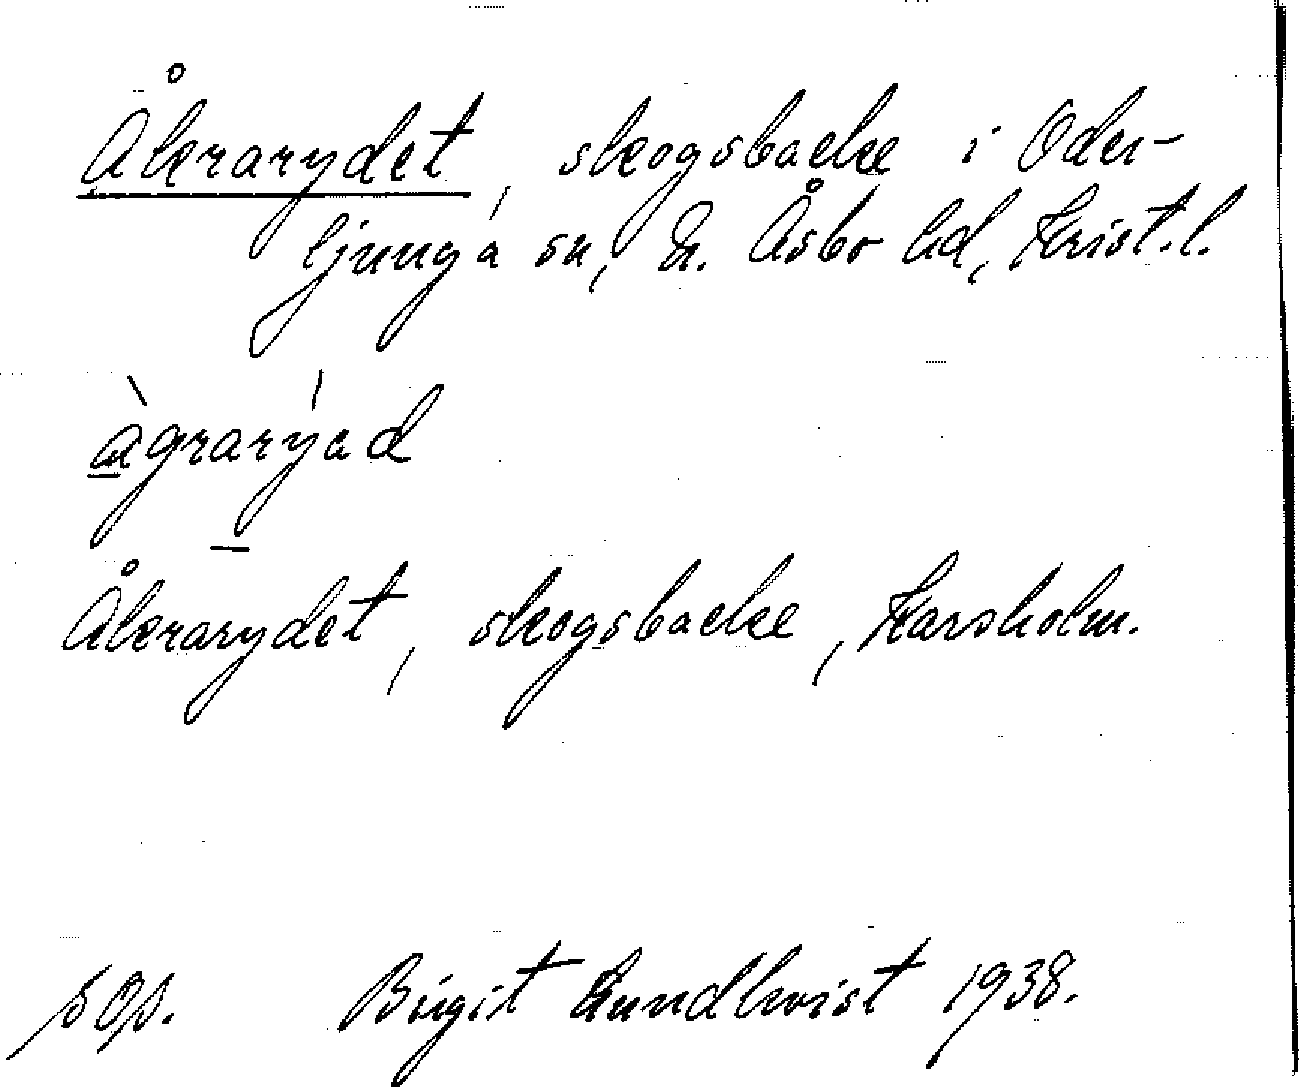 Åkrarydet, skogsbacke i Oder-
ljunga sn, N. Åsbo hd, Krist. l.
àgrarýad
Åkrarydet, skogsbacke, Karsholm.
Birgit Lundkvist 1938.